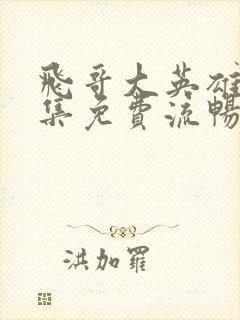 飛哥大英雄
集免費流暢
洪加羅